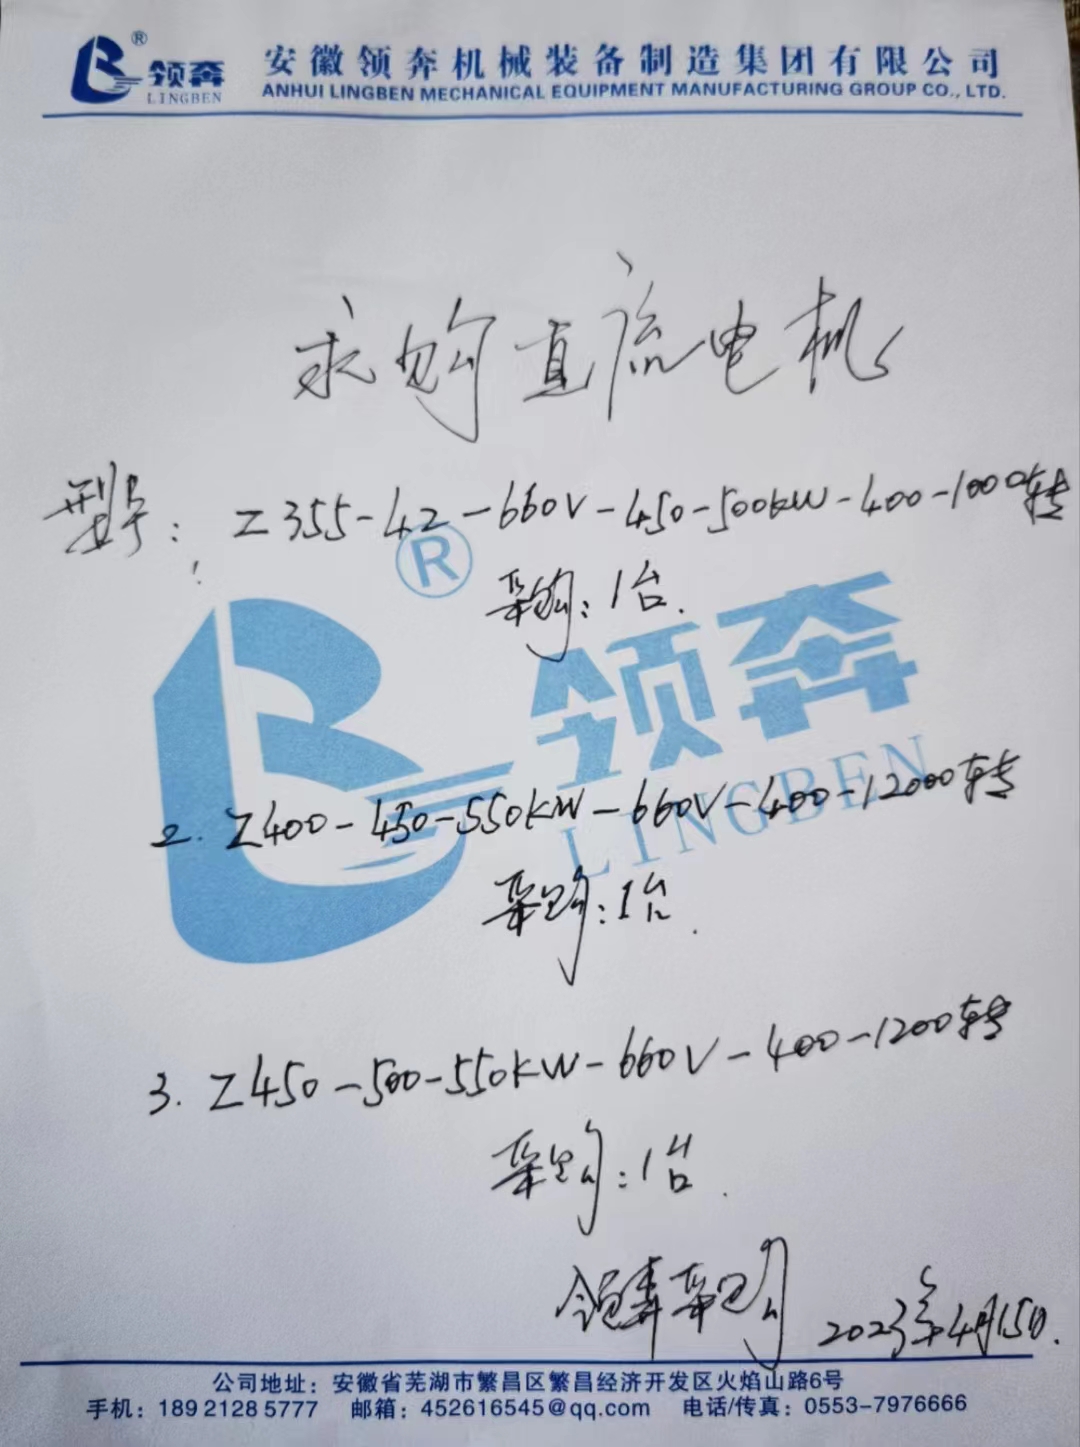 ® 领奔 LINGBEN
安徽领奔机械装备制造集团有限公司
ANHUI LINGBEN MECHANICAL EQUIPMENT MANUFACTURING GROUP CO., LTD.
求购直流电机
型号: Z355-42-660V-450-500kW-400-1000转
采购: 1台.
® 领奔
LINGBEN
2. Z400-450-550kW-660V-400-12000转
采购: 1台.
3. Z450-500-550kW-660V-400-1200转
采购: 1台.
领奔采购 2023年4月15日.
公司地址: 安徽省芜湖市繁昌区繁昌经济开发区火焰山路6号
手机: 189 2128 5777 邮箱: 452616545@qq.com 电话/传真: 0553-7976666